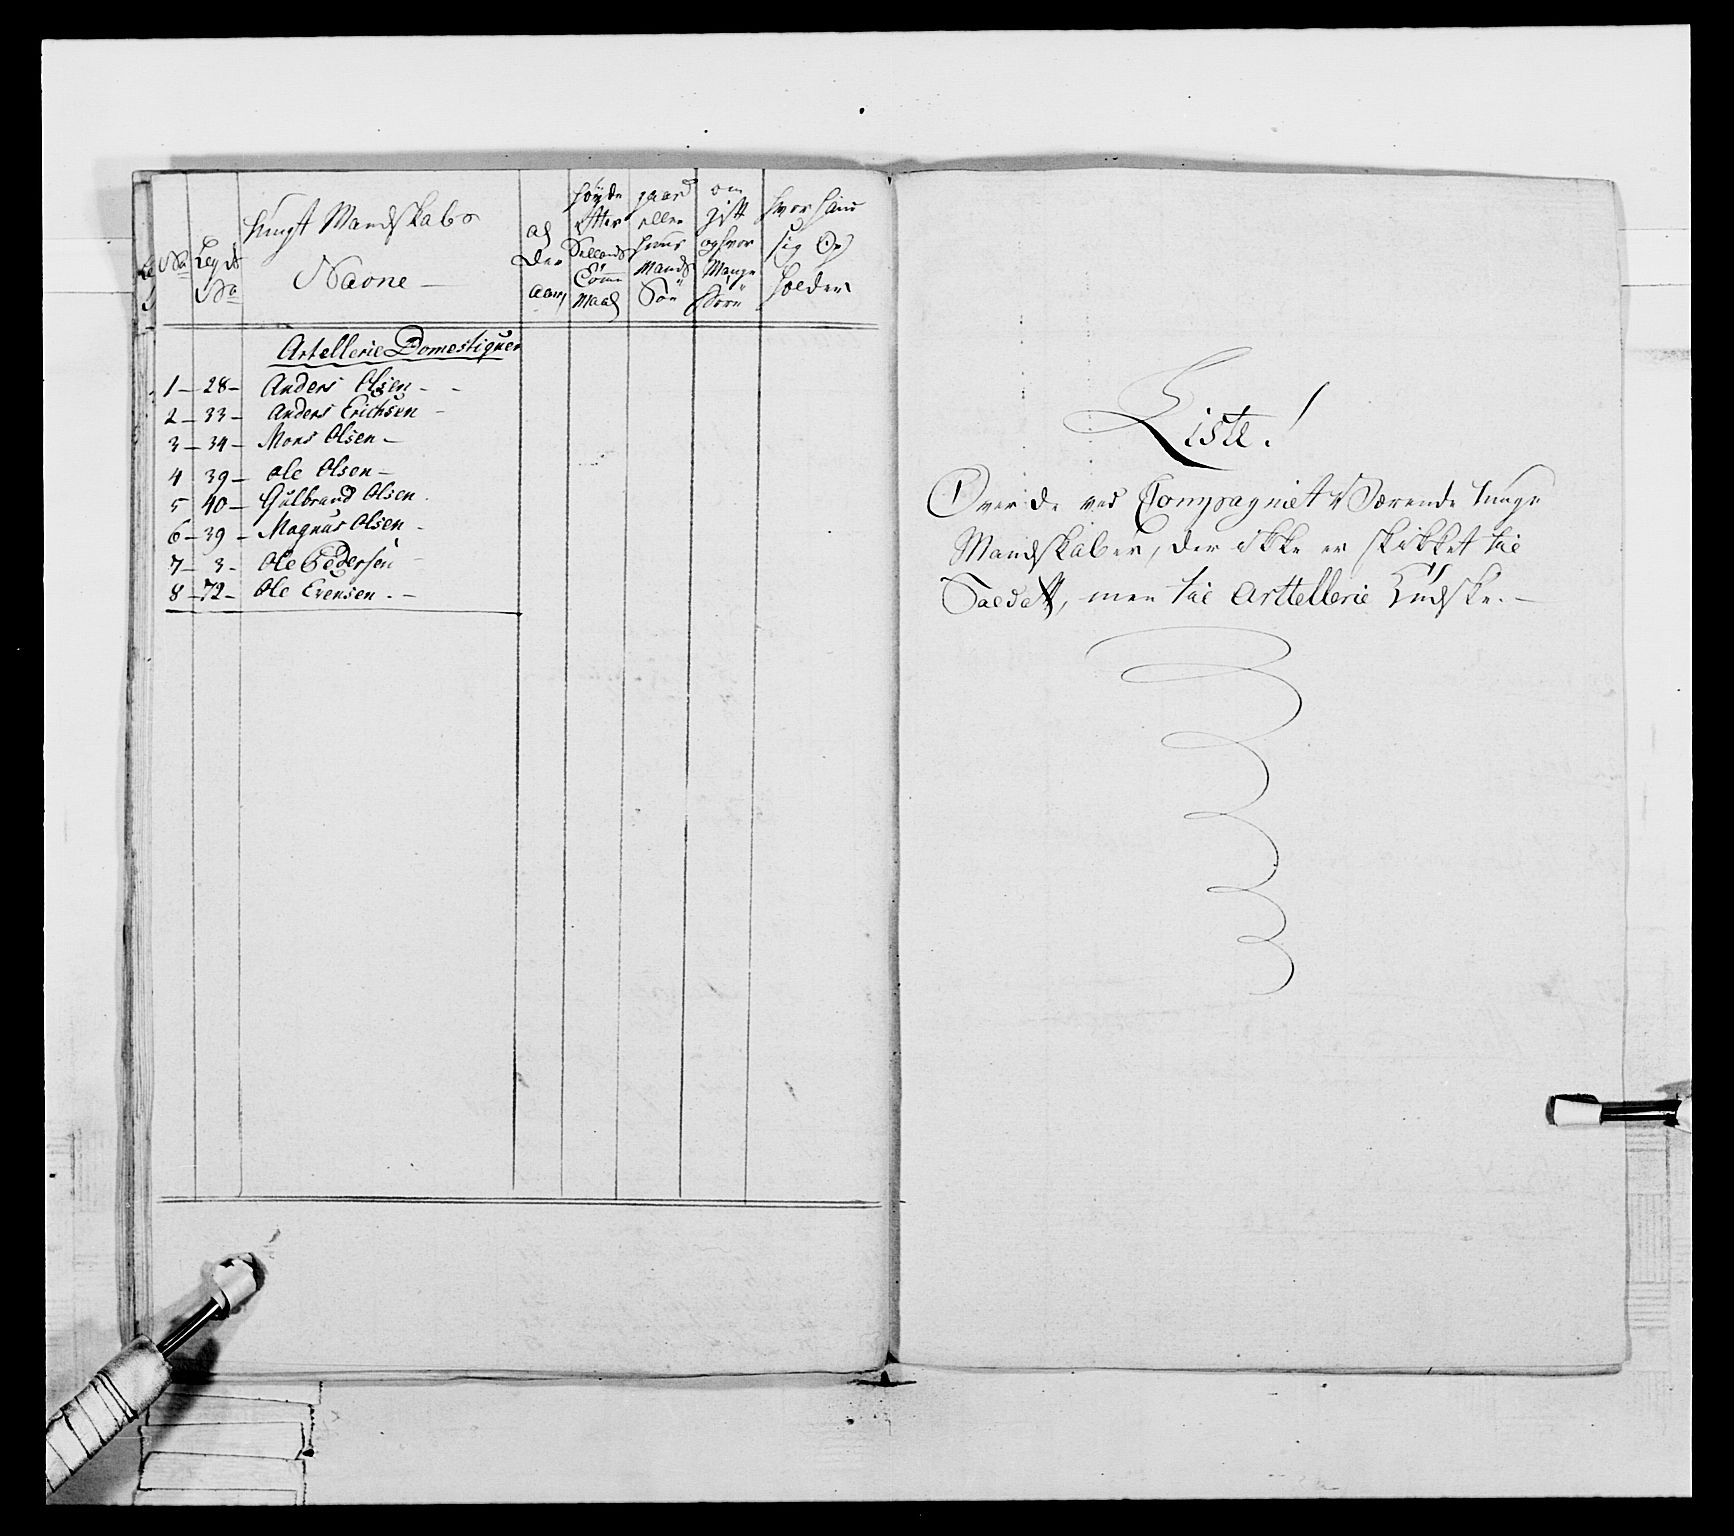 No
Legds
No
Ungt Mandskabs
Navne —
al
der
aar,
höyde
Efter
Sellands
Tomme
Maal
gaard
eller
Huus
Mands
Sön
om
gift
og hvor
Mange
Börn
hvor hand
sig Op
holder
Artellerie Domestiquer
1 — 28 — Anders Olsen - -
2 — 33 — Anders Erichsen -
3 — 34 — Mons Olsen —
4 39 — ole Olsen —
5 40 — Gulbrand Olsen.
6 — 39 — Magnus Olsen -
7 — 3 - Ole Pedersen -
8 — 72 - Ole Evensen. —
Liste!
Over de ved Compagniet Værende Unge
Mandskaber, der ikke er skikket til
Saldatt, men til Arttellerie Kudske. —